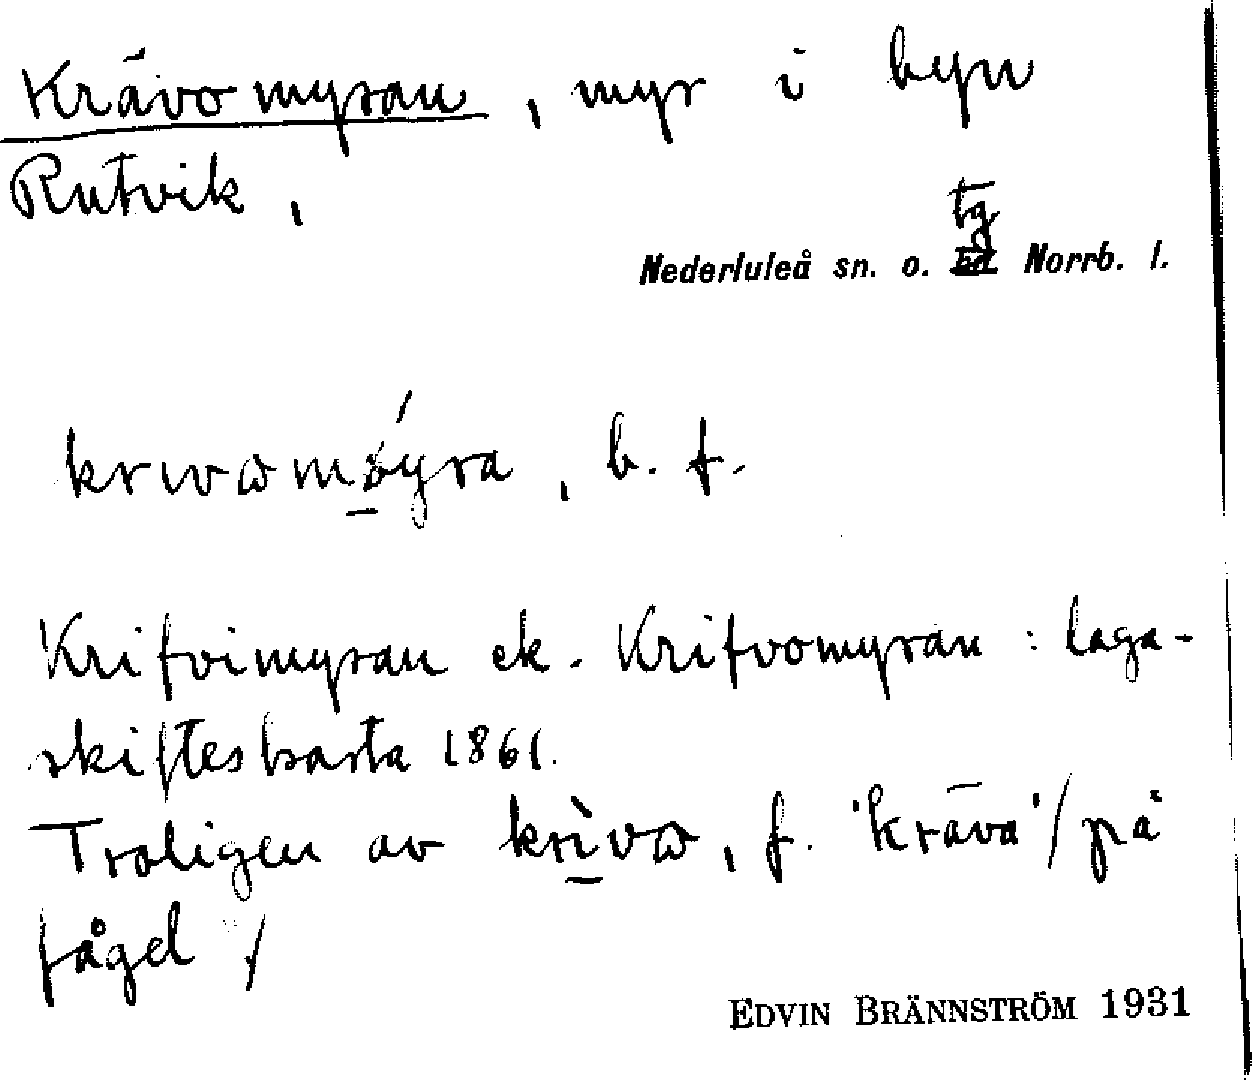 Krävomyran, myr i byn
Rutvik,
tg
Nederluleå sn. o. Norrb. l.
krɩvɷmǿyra, b. f.
Krifvimyran ek. Krifvomyran: laga-
skifteskarta 1861.
Troligen av krɩ̀vɷ, f. 'kräva' / på
fågel /
EDVIN BRÄNNSTRÖM 1931